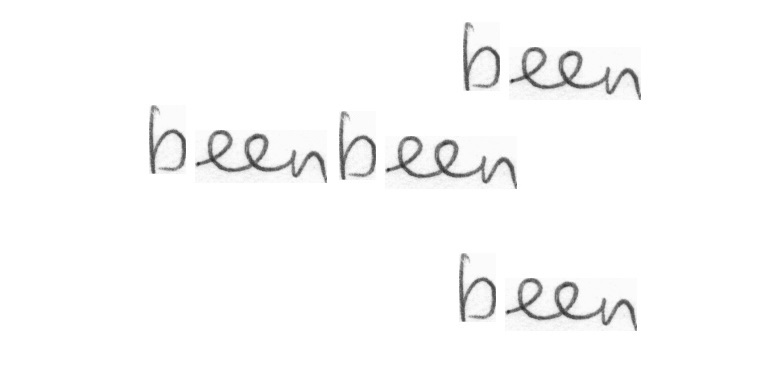 been
been been
been